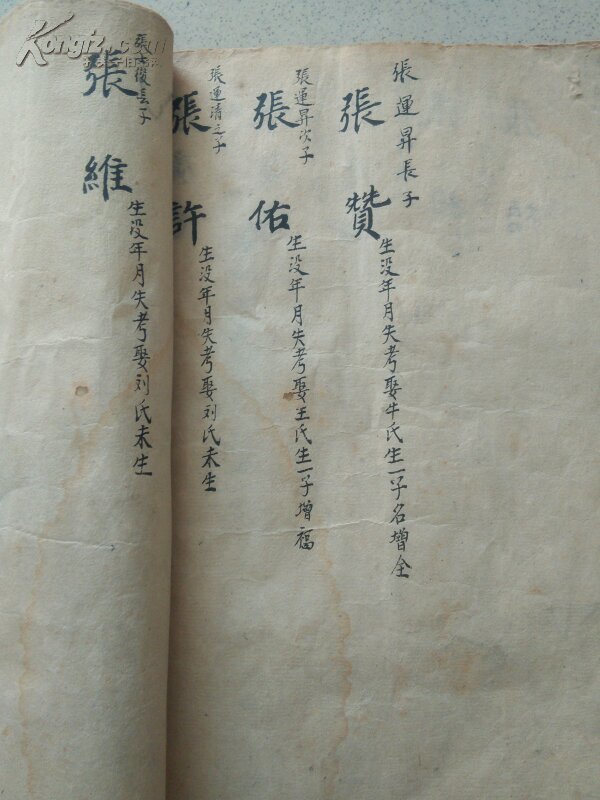 張運昇長子
張贊
生没年月失考娶牛氏生一子名增全
張運昇次子
張佑
生没年月失考娶王氏生一子增福
張運清之子
張許
生没年月失考娶刘氏未生
俊長子
張維
生没年月失考娶刘氏未生
KongfZ.com